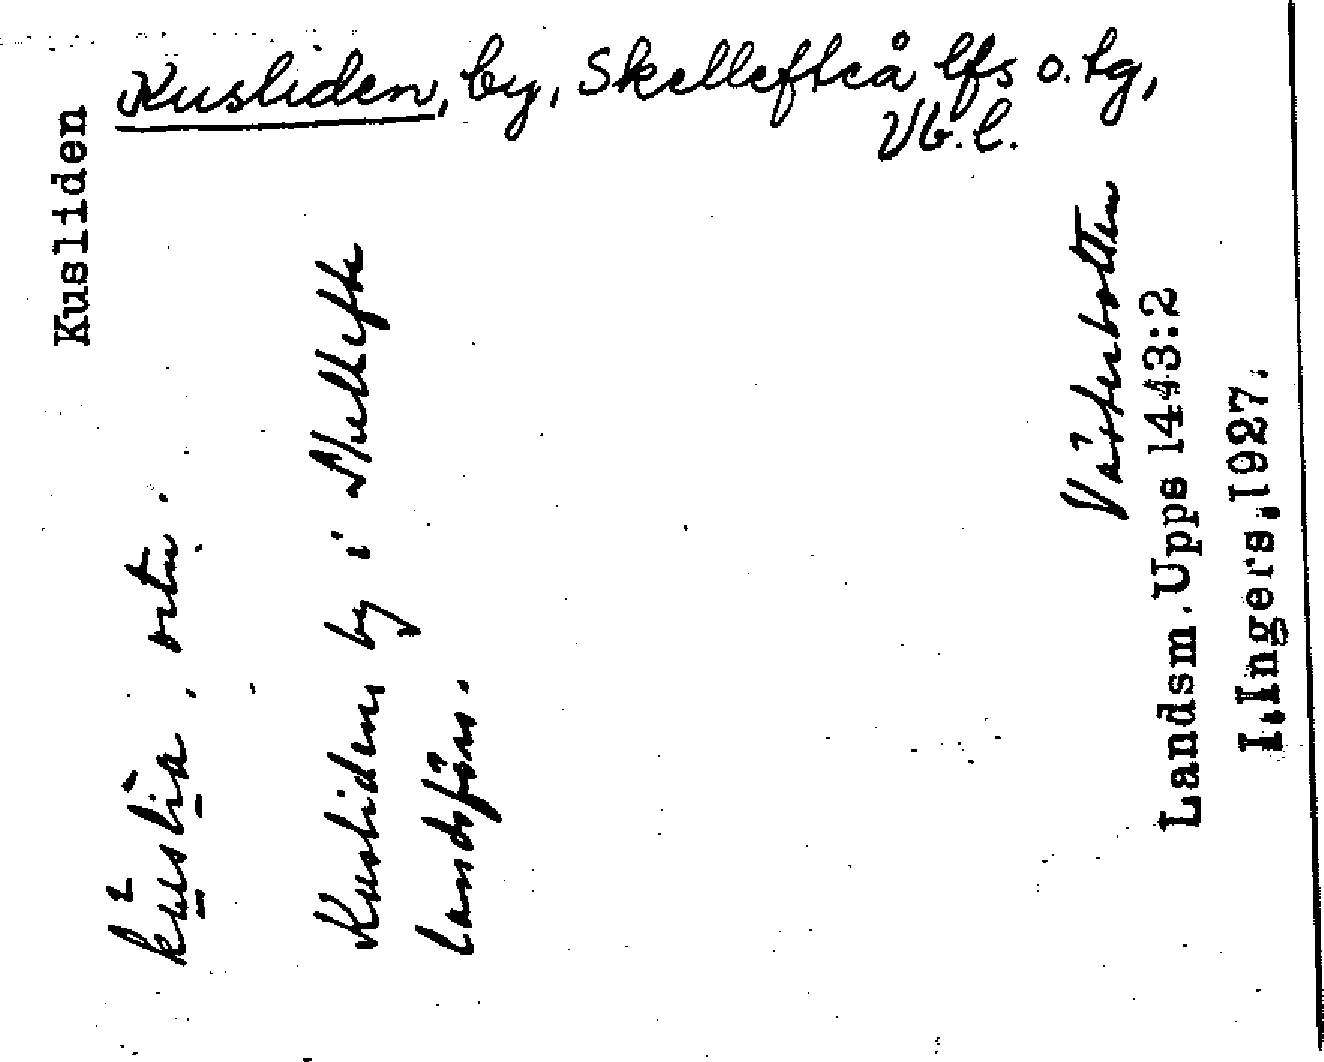 Kusliden, by, Skellefteå lfs o. tg,
Vb. l.
Kusliden
kùslìa, ortn.
Kusliden by i Skellefte
landsförs.
Västerbotten
Landsm. Upps 1443:2
I. Ingers, 1927.